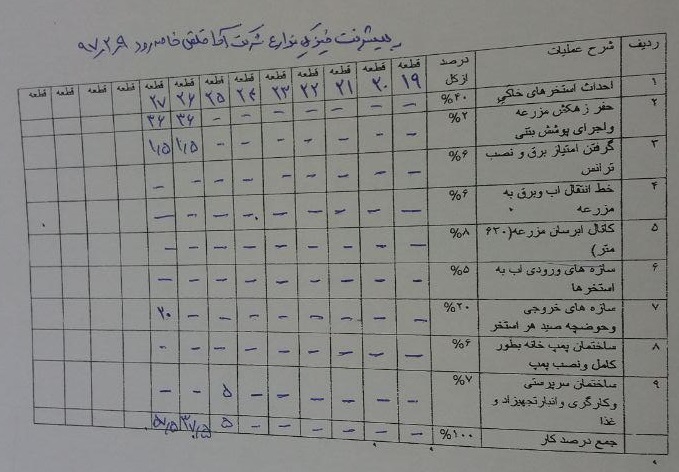 پیشرفت فیزیکی مزارع شرکت آقا قلی خامه رود ۹۷٫۲٫۹
ردیف شرح عملیات درصد ازکل قطعه ۱۹ قطعه ۲۰ قطعه ۲۱ قطعه ۲۲ قطعه ۲۳ قطعه ۲۴ قطعه ۲۵ قطعه ۲۶ قطعه ۲۷ قطعه قطعه قطعه قطعه
۱ احداث استخرهای خاکی %۴۰ – – – – – – – ۳۶ ۳۶
۲ حفر زهکش مزرعه واجرای پوشش بتنی %۲ – – – – – – – ۱٫۵ ۱٫۵
۳ گرفتن امتیاز برق و نصب ترانس %۶ – – – – – – – – –
۴ خط انتقال اب وبرق به مزرعه %۶ – – – – – – – – –
۵ کانال ابرسان مزرعه(۶۲۰ متر) %۸ – – – – – – – – –
۶ سازه های ورودی اب به استخرها %۵ – – – – – – – – –
۷ سازه های خروجی وحوضچه صید هر استخر %۲۰ – – – – – – – – ۲۰
۸ ساختمان پمپ خانه بطور کامل ونصب پمپ %۶ – – – – – – – – –
۹ ساختمان سرپرستی وکارگری وانبارتجهیزاد و غذا %۷ – – – – – – ۵ – –
جمع درصد کار %۱۰۰ – – – – – – ۵ ۳۷٫۵ ۵۷٫۵